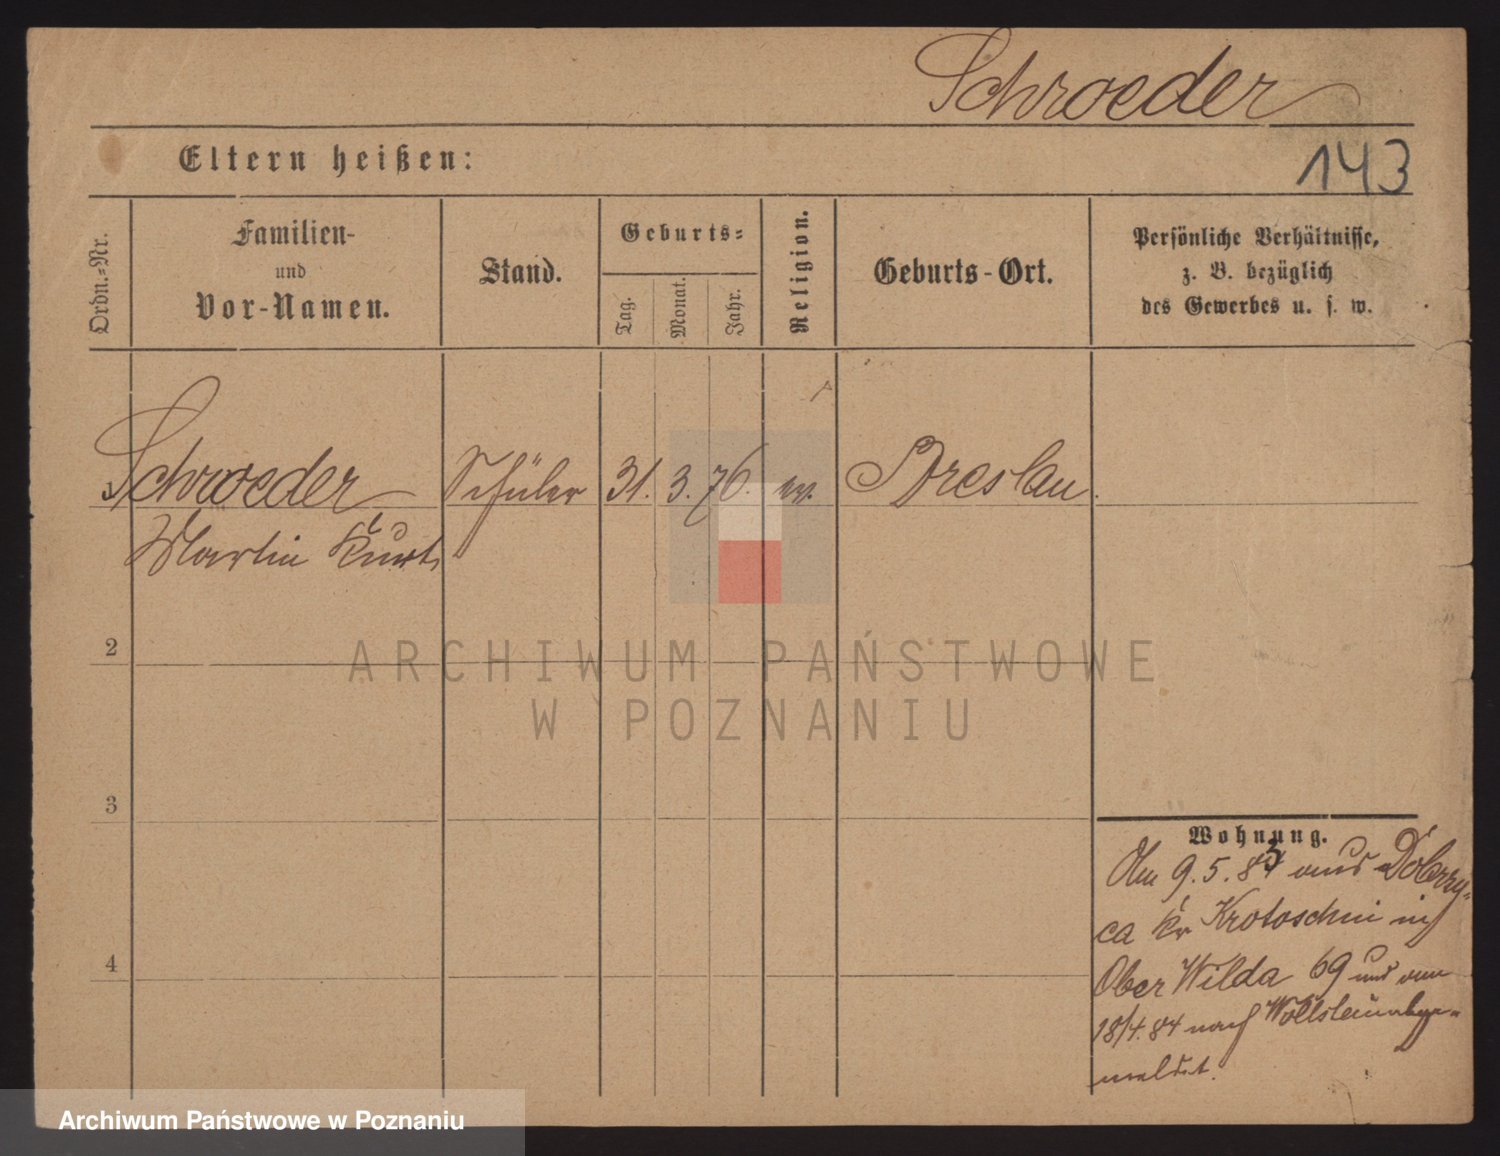 Schroeder
143
Eltern heißen:
Ordn.-Nr.
Familien-
und
Vor-Namen.
Stand.
Geburts-
Tag.
Monat.
Jahr.
Religion.
Geburts-Ort.
Persönliche Verhältnisse,
z. B. bezüglich
des Gewerbes u. s. w.
1 Schroeder Schüler 31. 3. 76. ev. Breslau.
Martin Kurt
2
3
4
Wohnung.
Am 9.5.83 aus Dobrzy-
ca Kr Krotoschin in
Ober Wilda 69 und am
18/4.84 nach Wollstein abge-
meldet.
ARCHIWUM PAŃSTWOWE
W POZNANIU
Archiwum Państwowe w Poznaniu